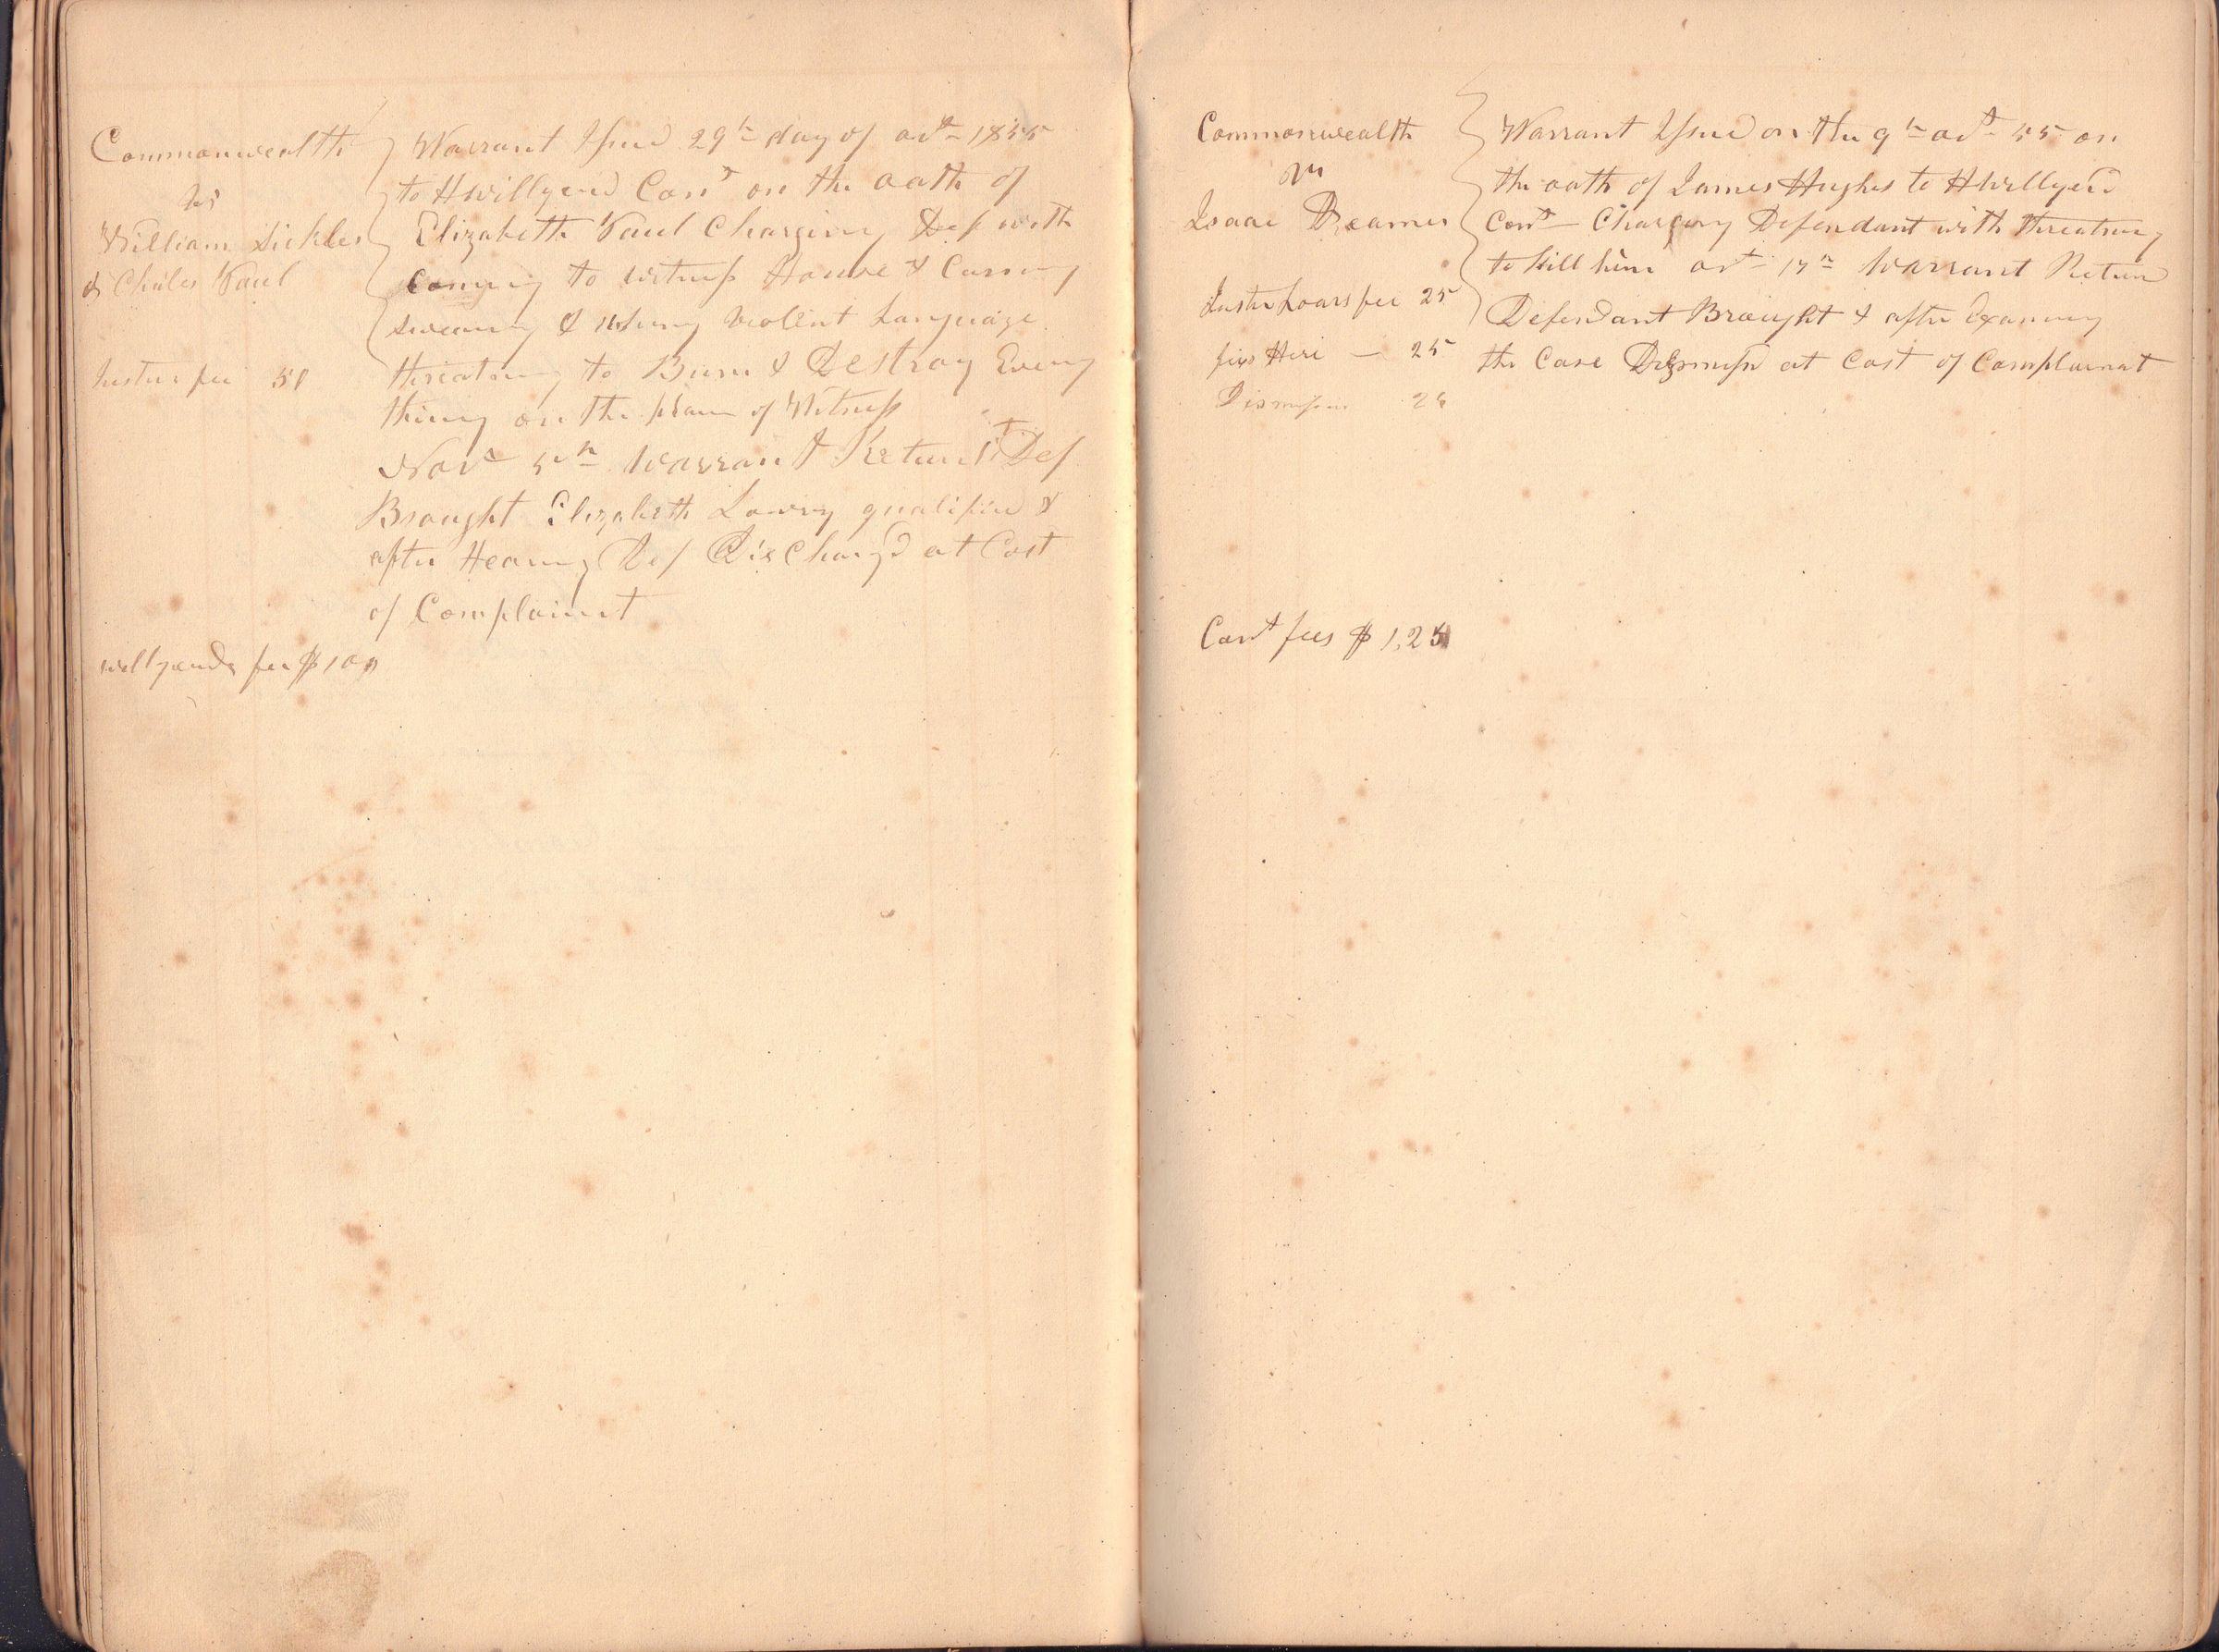 Commonwealth
vs
William Sickles
& Charles Paul
Justus fee 50
Willyards fee $ 1 00
Warrant Issued 29th day of Oct 1855
to H Willyard Cons on the oath of
Elizabeth Paul Charging Def with
coming to witness House & Cursing
swearing & using violent Language
threatning to Burn & Destroy Every
thing on the place of Witness
Novr 5th Warrant Returnd Def
Brought Elizabeth Lowry qualified &
after Hearing Def Discharged at Cost
of Complainnt
Commonwealth
vs
Isaac Beamer
fee 25
25
Dismission 25
Const fees $ 1,25
Warrant Issued on the 9th Oct 55 on
the oath of James Hughes to H Willyard
Const Charging Defendant with threatning
to kill him Oct 17th Warrant Return
Defendant Brought & after Examing
the Case Dismissd at Cost of Complainat